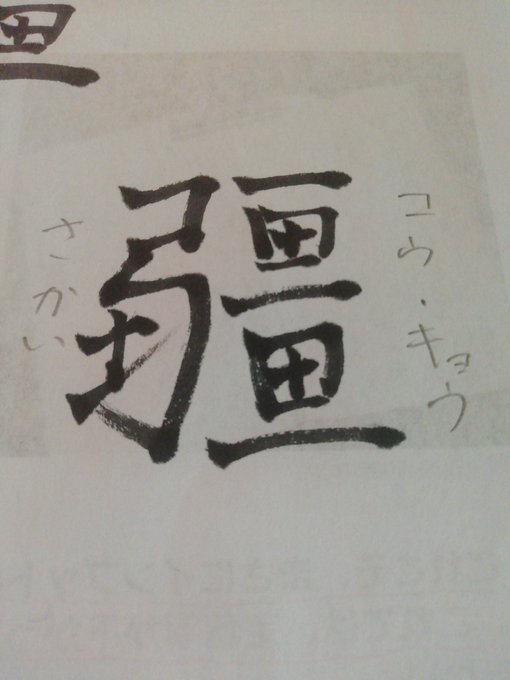 疆
コウ・キョウ
さかい